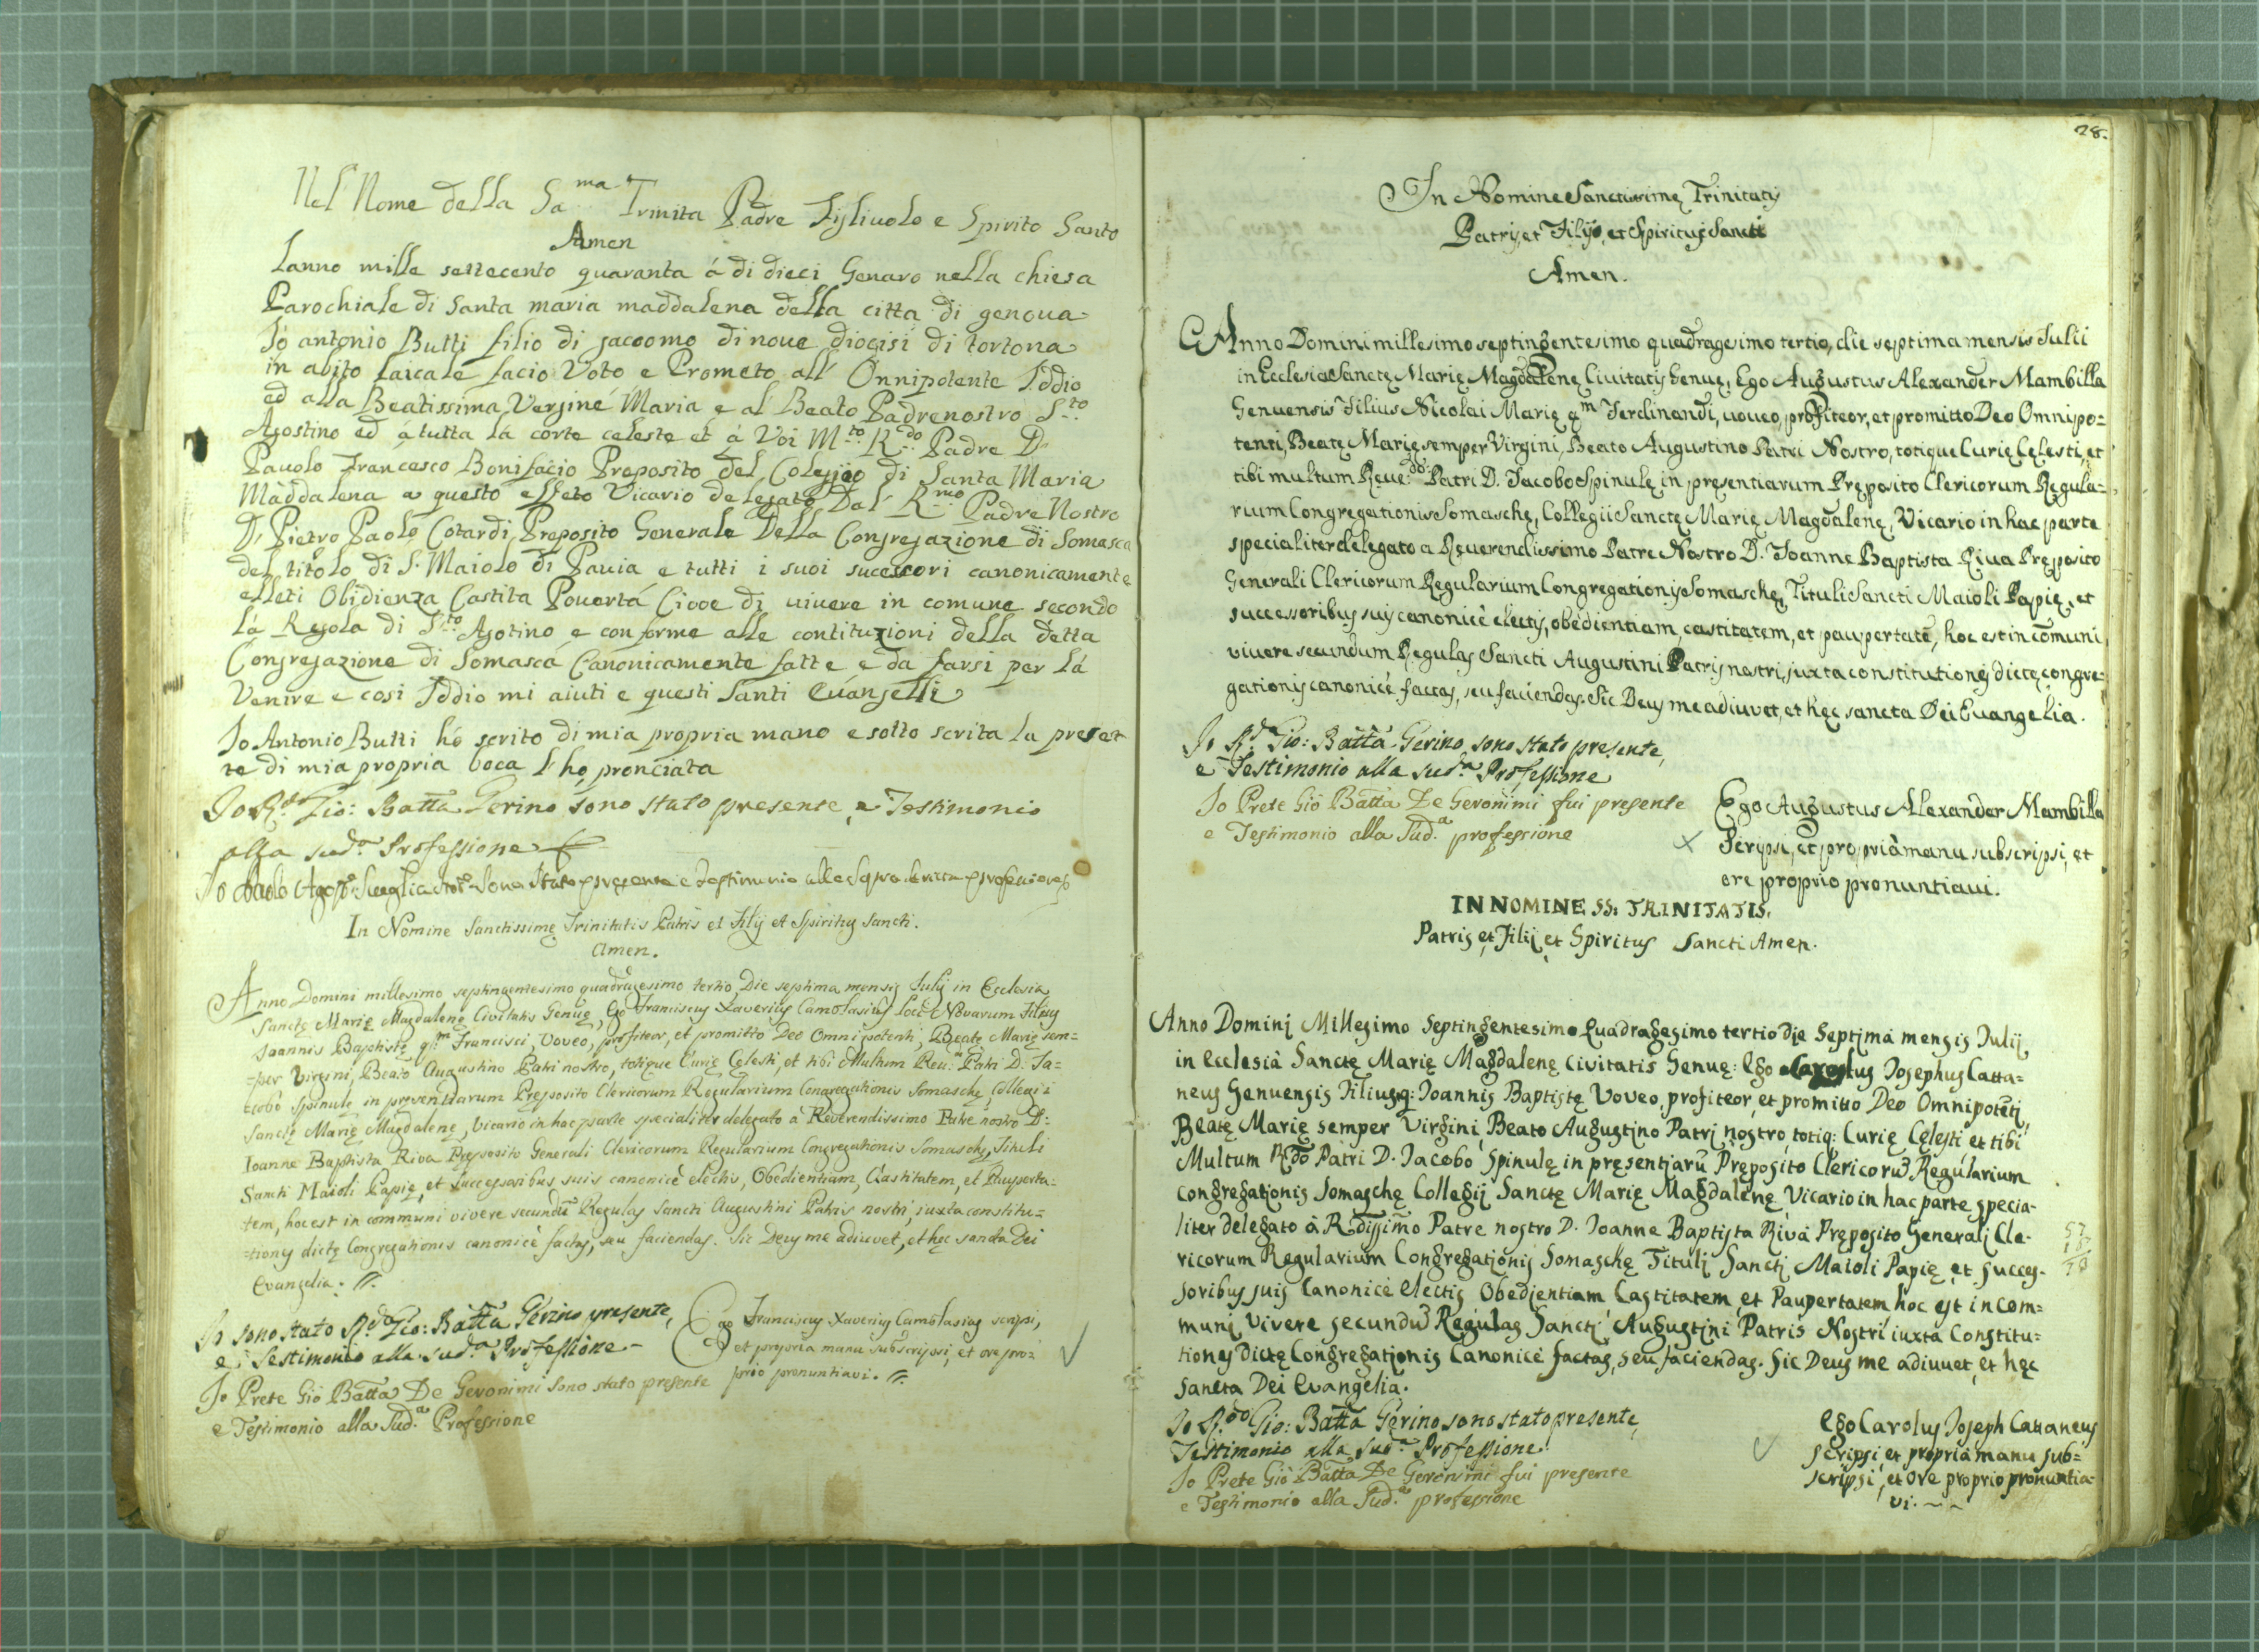 Nel Nome della Sa.ma Trinita Padre Figliuolo e Spirito Santo
Amen
Lanno mille settecento quaranta á di dieci Genaro nella chiesa
Parochiale di Santa maria maddalena della citta di genoua
Io antonio Butti filio di jacoomo di noue diocisi di tortona
in abito laicale facio Voto e Prometo all' Onnipotente Iddio
ed alla Beatissima Vergine Maria e al Beato Padre nostro S.to
Agostino ed á tutta lá corte celeste et á Voi M.to R.do Padre D.
Pauolo Francesco Bonifacio Preposito del Colegijo di Santa Maria
Maddalena a questo effeto Vicario delegato Dal R.mo Padre Nostro
D. Pietro Paolo Cotardi Preposito Generale Della Congregazione di Somasca
del titolo di S. Maiolo di Pauia e tutti i suoi sucessori canonicamente
elleti Obidienza Castita Pouertá Ciooe di uiuere in comune secondo
lá Regola di S.to Agotino e conforme alle contituzioni della detta
Congregazione di Somascá Canonicamente fatte e da farsi per lá
Venire e cosi Iddio mi aiuti e questi Santi Euangelli
Io Antonio Butti hó scrito di mia propria mano e sotto scrita la presen
te di mia propria boca l'ho pronciata
Io R.do Gio: Batta Gerino sono stato presente, e Testimonio
alla sud.a Professione
Io Paolo Agost.o sono stato presente e testimonio alla sopra scritta professione
In Nomine Sanctissimę Trinitatis Patris et Filij et Spiritus Sancti.
Amen.
Anno Domini millesimo septingentesimo quadragesimo tertio, Die septima mensis Julij in Ecclesia
Sanctę Marię Magdalenę Civitatis Genuę, Ego Franciscus Xaverius Camolasius loci Novarum Filius
Joannis Baptistę q.m Francisci, Voveo, profiteor, et promitto Deo Omnipotenti, Beatę Marię sem=
=per Virgini, Beato Augustino Patri nostro, totique Curię Cęlesti, et tibi Multum Reu:do Patri D. Ja=
=cobo Spinulę in pręsentiarum Pręposito Clericorum Regularium Congregationis Somaschę Collegii
Sanctę Marię Magdalenę, Vicario in hac parte specialiter delegato à Reverendissimo Patre nostro D:
Ioanne Baptista Riva Pręposito Generali Clericorum Regularium Congregationis Somaschę, Tituli
Sancti Maioli Papię, et successoribus suis canonicè electis, Obedientiam, Castitatem, et Pauperta=
=tem, hoc est in communi vivere secundū Regulas Sancti Augustini Patris nostri, iuxta constitu=
=tiones dictę Congregationis canonicè factas, seu faciendas. Sic Deus me adiuvet, et hęc sancta Dei
Evangelia.
Io sono stato R.do Gio: Batta Gerino presente,
e Testimonio alla sud.a Professione
Ego Franciscus Xaverius Camolasius scripsi,
et propria manu subscripsi, et ore pro=
prio pronuntiavi.
Io Prete Gio Batta De Geronimi sono stato presente
e Testimonio alla Sud.a Professione
28.
In Nomine Sanctissimę Trinitatis
Patris, et Filijs, et Spiritus Sancti
Amen.
Anno Domini millesimo septingentesimo quadragesimo tertio, die septima mensis Iulii
in Ecclesia Sanctę Marię Magdalenę Ciuitatis Genuę, Ego Augustus Alexander Mambilla
Genuensis Filius Nicolai Marię q.m Ferdinandi, uoueo, profiteor, et promitto Deo Omnipo=
tenti, Beatę Marię semper Virgini, Beato Augustino Patri Nostro, totique Curię Cęlesti, et
tibi multum Reue:do Patri D. Iacobo Spinulę in pręsentiarum Pręposito Clericorum Regula=
rium Congregationis Somaschę, Collegii Sanctę Marię Magdalenę, Vicario in hac parte
specialiter delegato a Reuerendissimo Patre Nostro D. Ioanne Baptista Riua Pręposito
Generali Clericorum Regularium Congregationis Somaschę, Tituli Sancti Maioli Papię, et
successoribus suis canonicè electis, obedientiam, castitatem, et paupertatē, hoc est in cōmuni
viuere secundum Regulas Sancti Augustini Patris nostri, iuxta constitutiones dictę congre=
gationis canonicè factas, seu faciendas. Sic Deus me adiuvet, et hęc sancta Dei Euangelia.
Io R.do Gio: Batta Gerino sono stato presente,
e Testimonio alla sud.a Professione
Io Prete Gio Batta De Geronimi fui presente
e Testimonio alla Sud.a professione
Ego Augustus Alexander Mambilla
Scripsi, et propriâ manu subscripsi, et
ore proprio pronuntiaui.
IN NOMINE SS: TRINITATIS.
Patris et Filij et Spiritus Sancti Amen.
Anno Domini Millesimo Septingentesimo Quadragesimo tertio die Septima mensis Iulij
in Ecclesià Sanctę Marię Magdalenę Civitatis Genuę: Ego Carolus Iosephus Catta=
neus Genuensis Filius q: Ioannis Baptistę Voveo, profiteor, et promitto Deo Omnipotēti,
Beatę Marię semper Virgini, Beato Augustino Patri nostro, totiq: Curię Cęlesti et tibi
Multum Rdō Patri D. Iacobo Spinulę in pręsentiarū Pręposito Clericorū Regularium
Congregationis Somaschę Collegij Sanctę Marię Magdalenę Vicario in hac parte specia-
liter delegato à Rdissimo Patre nostro D. Ioanne Baptista Rivà Pręposito Generali Cle-
ricorum Regularium Congregationis Somaschę Tituli Sancti Maioli Papię et succes-
soribus suis Canonicè electis Obedientiam Castitatem et Paupertatem hoc est in com=
muni vivere secundū Regulas Sancti Augustini Patris Nostri iuxta Constitu=
tiones dictę Congregationis Canonicè factas, seu faciendas. Sic Deus me adiuuet, et hęc
Sancta Dei Evangelia.
Io R.do Gio: Batta Gerino sono stato presente,
Testimonio alla sud.a Professione
Io Prete Gio Batta De Geronimi fui presente
e Testimonio alla Sud.a professione
Ego Carolus Ioseph Cattaneus
scripsi et propriâ manu sub=
scripsi, et ore proprio pronuntia=
vi.